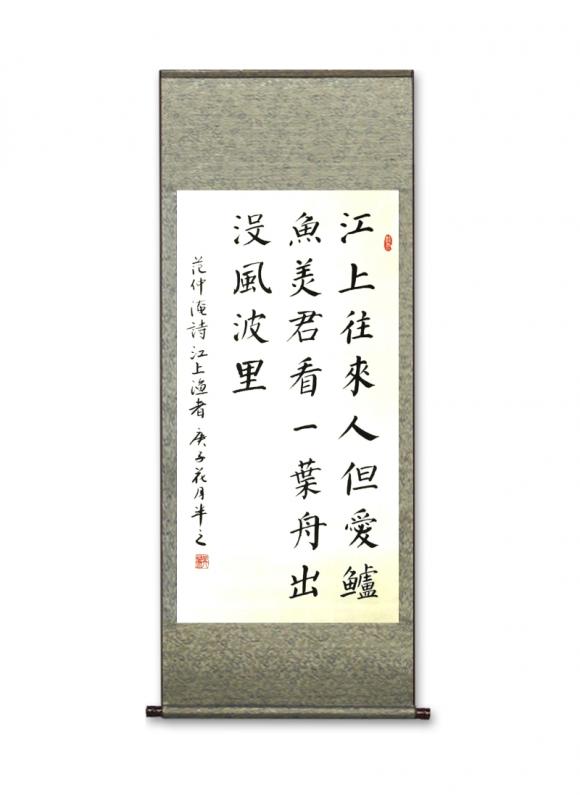 江上往來人但愛鱸
魚美君看一葉舟出
没風波里
范仲淹詩江上漁者 庚子花月半之